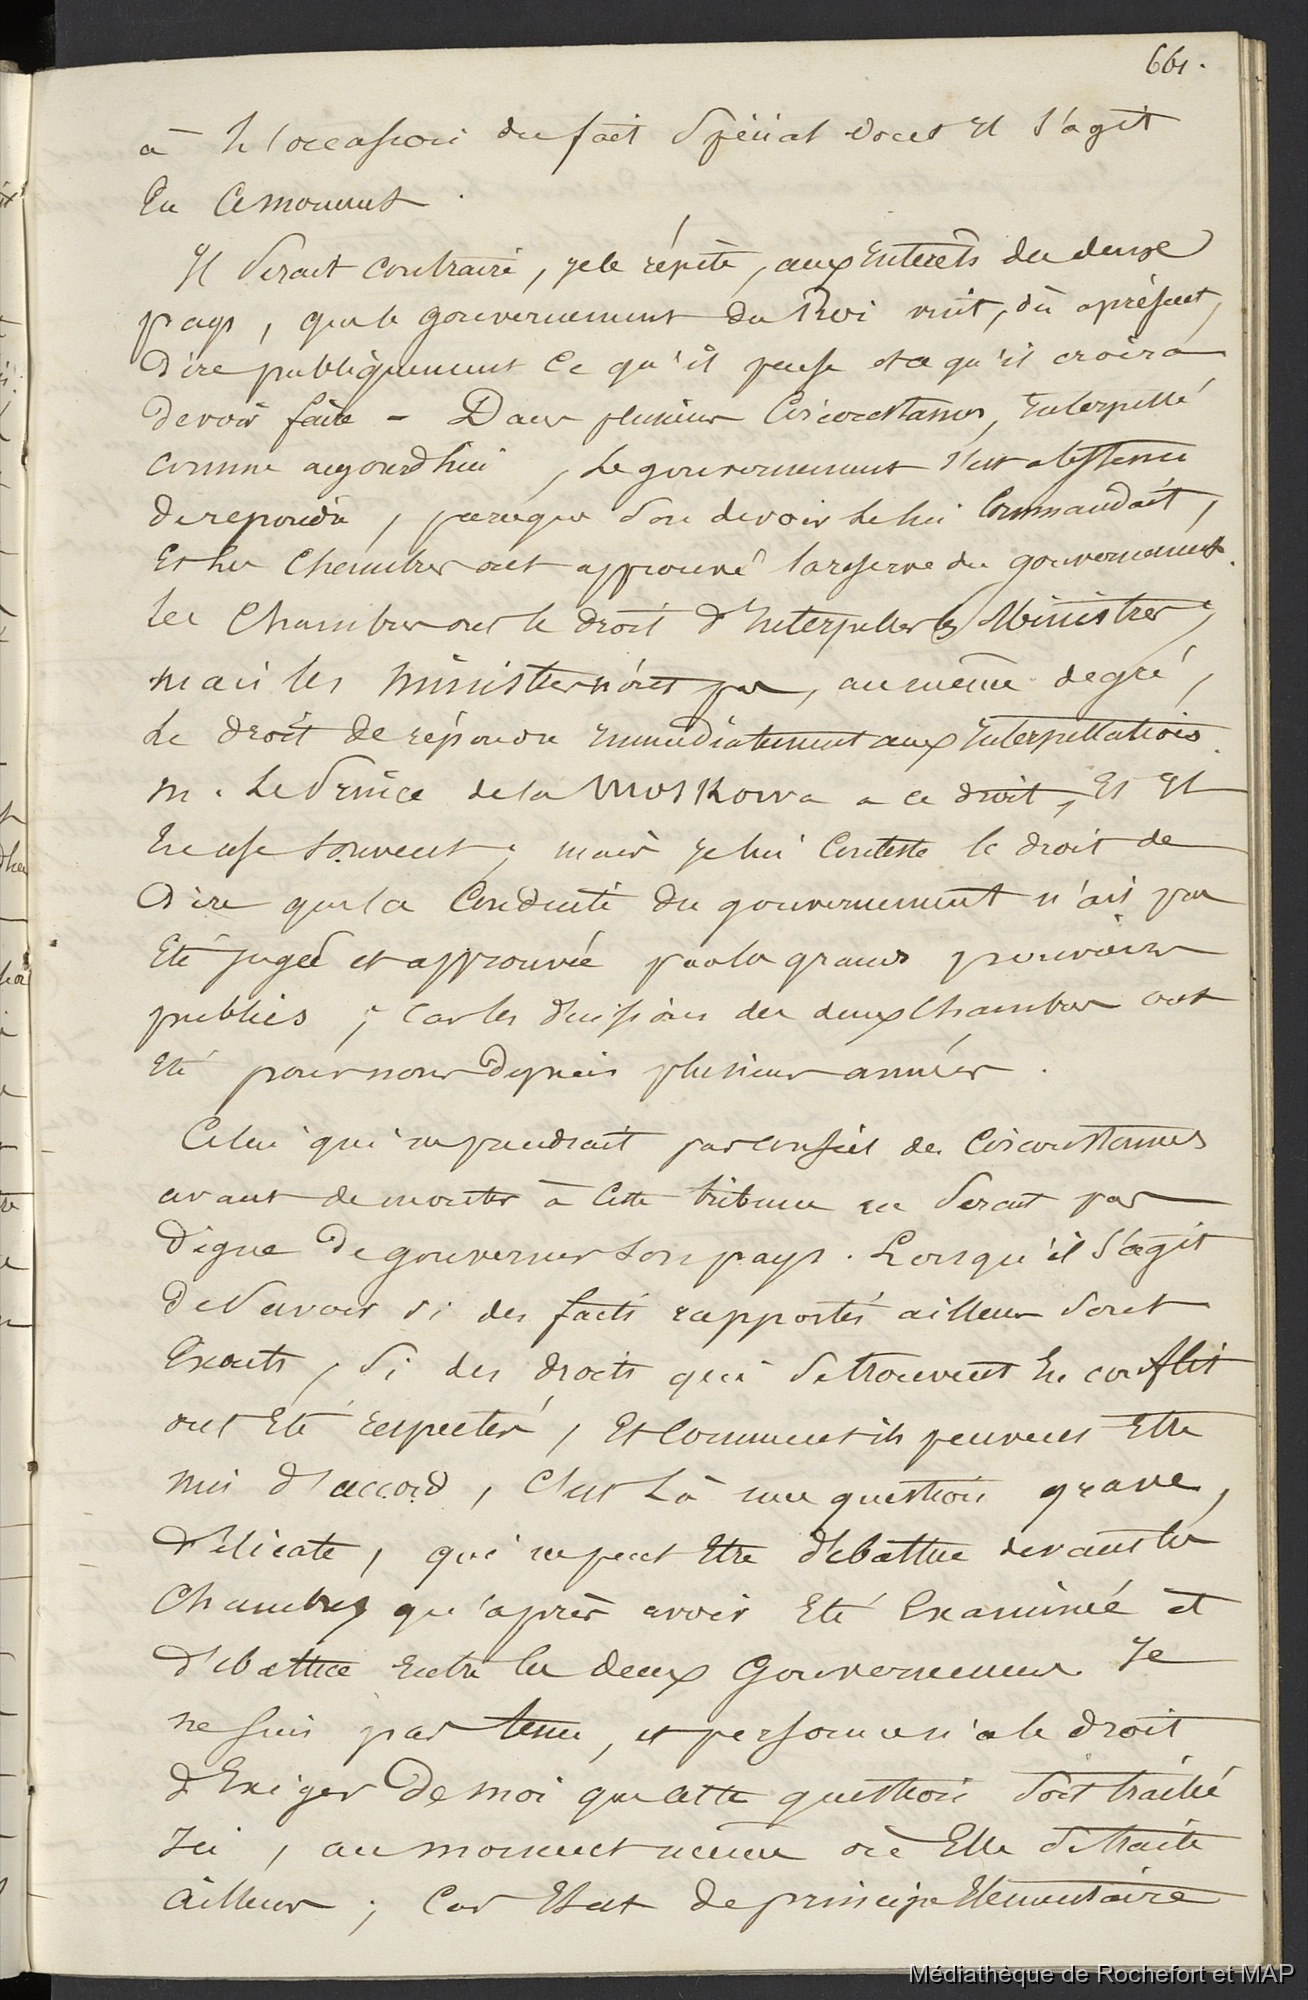 661.
à l'occasion du fait spécial dont il s'agit
en ce moment.
Il serait contraire, je le répète, aux intérêts des deux
pays, que le gouvernement du Roi vint, dès à présent,
dire publiquement ce qu'il pense et ce qu'il croira
devoir faire - Dans plusieurs circonstances, interpellé
comme aujourd'hui, le gouvernement s'est abstenu
de repondre, parceque son devoir le lui commandait,
et les Chambres ont approuvé la réserve du gouvernement.
les Chambres ont le droit d'interpeller les Ministres;
mais les ministres n'ont pas, au même degré,
le droit de répondre immédiatement aux interpellations.
M. Le Prince de la Moskowa a ce droit, et il
en use souvent; mais je lui conteste le droit de
dire que la conduite du gouvernement n'ait pas
été jugée et approuvée par les grands pouvoirs
publics; car les décisions des deux Chambres ont
été pour nous depuis plusieurs années.
Celui qui ne prendrait pas conseil des circonstances
avant de monter à cette tribune ne serait pas
digne de gouverner son pays. Lorsqu'il s'agit
de savoir si des faits rapportés ailleurs sont
exacts, si des droits qui se trouvent en conflit
ont été respectés, et comment ils peuvent être
mis d'accord, c'est là une question grave,
délicate, qui ne peut être débattue devant les
Chambres qu'après avoir été examinée et
débattue entre les deux Gouvernements. Je
ne suis pas tenu, et personne n'a le droit
d'exiger de moi que cette question soit traitée
ici, au moment même où elle se traite
ailleurs; car il est de principe élémentaire
Médiathèque de Rochefort et MAP